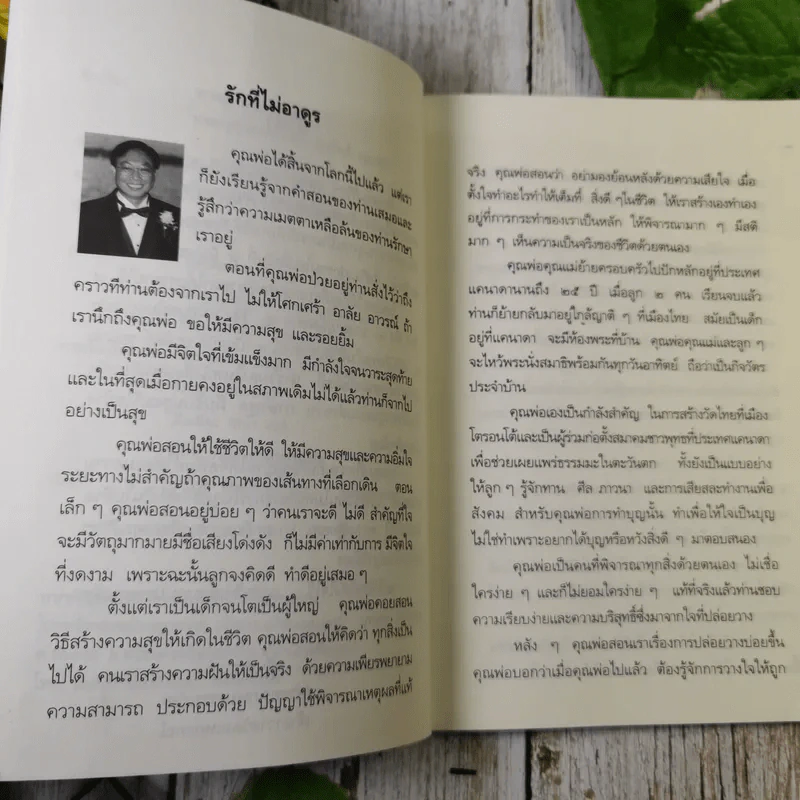 รักที่ไม่อาดูร
คุณพ่อได้สิ้นจากโลกนี้ไปแล้ว แต่เรา
ก็ยังเรียนรู้จากคำสอนของท่านเสมอและ
รู้สึกว่าความเมตตาเหลือล้นของท่านรักษา
เราอยู่
ตอนที่คุณพ่อป่วยอยู่ท่านสั่งไว้ว่าถึง
คราวทีท่านต้องจากเราไป ไม่ให้โศกเศร้า อาลัย อาวรณ์ ถ้า
เรานึกถึงคุณพ่อ ขอให้มีความสุข และรอยยิ้ม
คุณพ่อมีจิตใจที่เข้มแข็งมาก มีกำลังใจจนวาระสุดท้าย
และในที่สุดเมื่อกายคงอยู่ในสภาพเดิมไม่ได้แล้วท่านก็จากไป
อย่างเป็นสุข
คุณพ่อสอนให้ใช้ชีวิตให้ดี ให้มีความสุขและความอิ่มใจ
ระยะทางไม่สำคัญถ้าคุณภาพของเส้นทางที่เลือกเดิน ตอน
เล็ก ๆ คุณพ่อสอนอยู่บ่อย ๆ ว่าคนเราจะดี ไม่ดี สำคัญที่ใจ
จะมีวัตถุมากมายมีชื่อเสียงโด่งดัง ก็ไม่มีค่าเท่ากับการ มีจิตใจ
ที่งดงาม เพราะฉะนั้นลูกจงคิดดี ทำดีอยู่เสมอ ๆ
ตั้งแต่เราเป็นเด็กจนโตเป็นผู้ใหญ่ คุณพ่อคอยสอน
วิธีสร้างความสุขให้เกิดในชีวิต คุณพ่อสอนให้คิดว่า ทุกสิ่งเป็น
ไปได้ คนเราสร้างความฝันให้เป็นจริง ด้วยความเพียรพยายาม
ความสามารถ ประกอบด้วย ปัญญาใช้พิจารณาเหตุผลที่แท้
จริง คุณพ่อสอนว่า อย่ามองย้อนหลังด้วยความเสียใจ เมื่อ
ตั้งใจทำอะไรทำให้เต็มที่ สิ่งดี ๆในชีวิต ให้เราสร้างเองทำเอง
อยู่ที่การกระทำของเราเป็นหลัก ให้พิจารณามาก ๆ มีสติ
มาก ๆ เห็นความเป็นจริงของชีวิตด้วยตนเอง
คุณพ่อคุณแม่ย้ายครอบครัวไปปักหลักอยู่ที่ประเทศ
แคนาดานานถึง ๒๕ ปี เมื่อลูก ๒ คน เรียนจบแล้ว
ท่านก็ย้ายกลับมาอยู่ใกล้ญาติ ๆ ที่เมืองไทย สมัยเป็นเด็ก
อยู่ที่แคนาดา จะมีห้องพระที่บ้าน คุณพ่อคุณแม่และลูก ๆ
จะไหว้พระนั่งสมาธิพร้อมกันทุกวันอาทิตย์ ถือว่าเป็นกิจวัตร
ประจำบ้าน
คุณพ่อเองเป็นกำลังสำคัญ ในการสร้างวัดไทยที่เมือง
โตรอนโต้และเป็นผู้ร่วมก่อตั้งสมาคมชาวพุทธที่ประเทศแคนาดา
เพื่อช่วยเผยแพร่ธรรมมะในตะวันตก ทั้งยังเป็นแบบอย่าง
ให้ลูก ๆ รู้จักทาน ศีล ภาวนา และการเสียสละทำงานเพื่อ
สังคม สำหรับคุณพ่อการทำบุญนั้น ทำเพื่อให้ใจเป็นบุญ
ไม่ใช่ทำเพราะอยากได้บุญหรือหวังสิ่งดี ๆ มาตอบสนอง
คุณพ่อเป็นคนที่พิจารณาทุกสิ่งด้วยตนเอง ไม่เชื่อ
ใครง่าย ๆ และก็ไม่ยอมใครง่าย ๆ แท้ที่จริงแล้วท่านชอบ
ความเรียบง่ายและความบริสุทธิ์ซึ่งมาจากใจที่ปล่อยวาง
หลัง ๆ คุณพ่อสอนเราเรื่องการปล่อยวางบ่อยขึ้น
คุณพ่อบอกว่าเมื่อคุณพ่อไปแล้ว ต้องรู้จักการวางใจให้ถูก